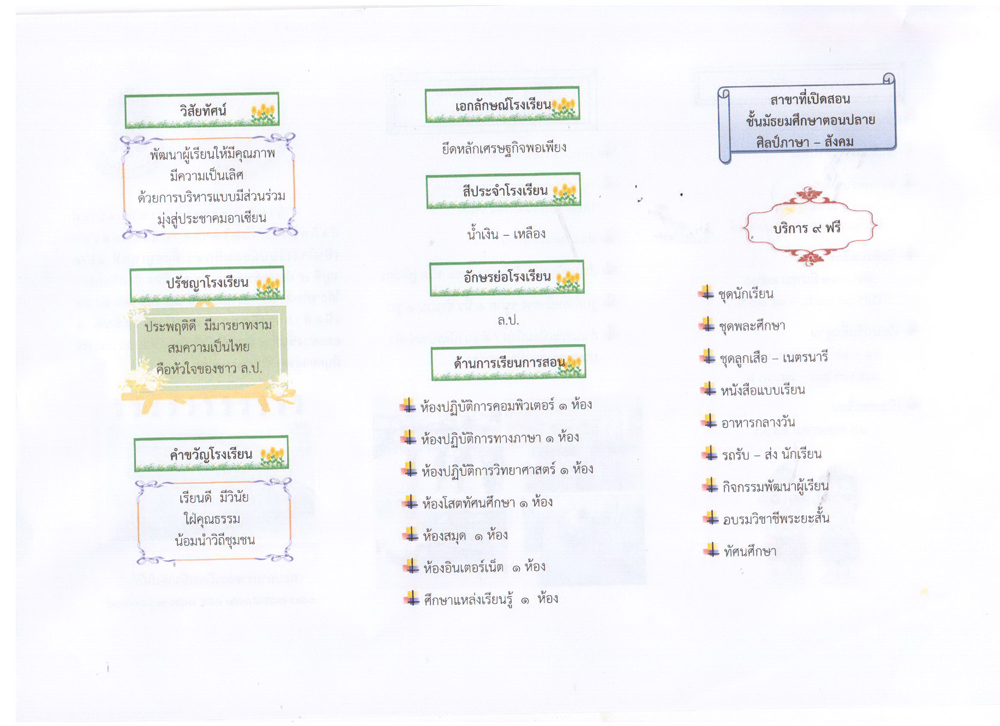 วิสัยทัศน์
พัฒนาผู้เรียนให้มีคุณภาพ
มีความเป็นเลิศ
ด้วยการบริหารแบบมีส่วนร่วม
มุ่งสู่ประชาคมอาเซียน
ปรัชญาโรงเรียน
ประพฤติดี มีมารยาทงาม
สมความเป็นไทย
คือหัวใจของชาว ล.ป.
คำขวัญโรงเรียน
เรียนดี มีวินัย
ใฝ่คุณธรรม
น้อมนำวิถีชุมชน
เอกลักษณ์โรงเรียน
ยึดหลักเศรษฐกิจพอเพียง
สีประจำโรงเรียน
น้ำเงิน – เหลือง
อักษรย่อโรงเรียน
ล.ป.
ด้านการเรียนการสอน
ห้องปฏิบัติการคอมพิวเตอร์ ๑ ห้อง
ห้องปฏิบัติการทางภาษา ๑ ห้อง
ห้องปฏิบัติการวิทยาศาสตร์ ๑ ห้อง
ห้องโสตทัศนศึกษา ๑ ห้อง
ห้องสมุด ๑ ห้อง
ห้องอินเตอร์เน็ต ๑ ห้อง
ศึกษาแหล่งเรียนรู้ ๑ ห้อง
สาขาที่เปิดสอน
ชั้นมัธยมศึกษาตอนปลาย
ศิลป์ภาษา – สังคม
บริการ ๙ ฟรี
ชุดนักเรียน
ชุดพละศึกษา
ชุดลูกเสือ – เนตรนารี
หนังสือแบบเรียน
อาหารกลางวัน
รถรับ – ส่ง นักเรียน
กิจกรรมพัฒนาผู้เรียน
อบรมวิชาชีพระยะสั้น
ทัศนศึกษา